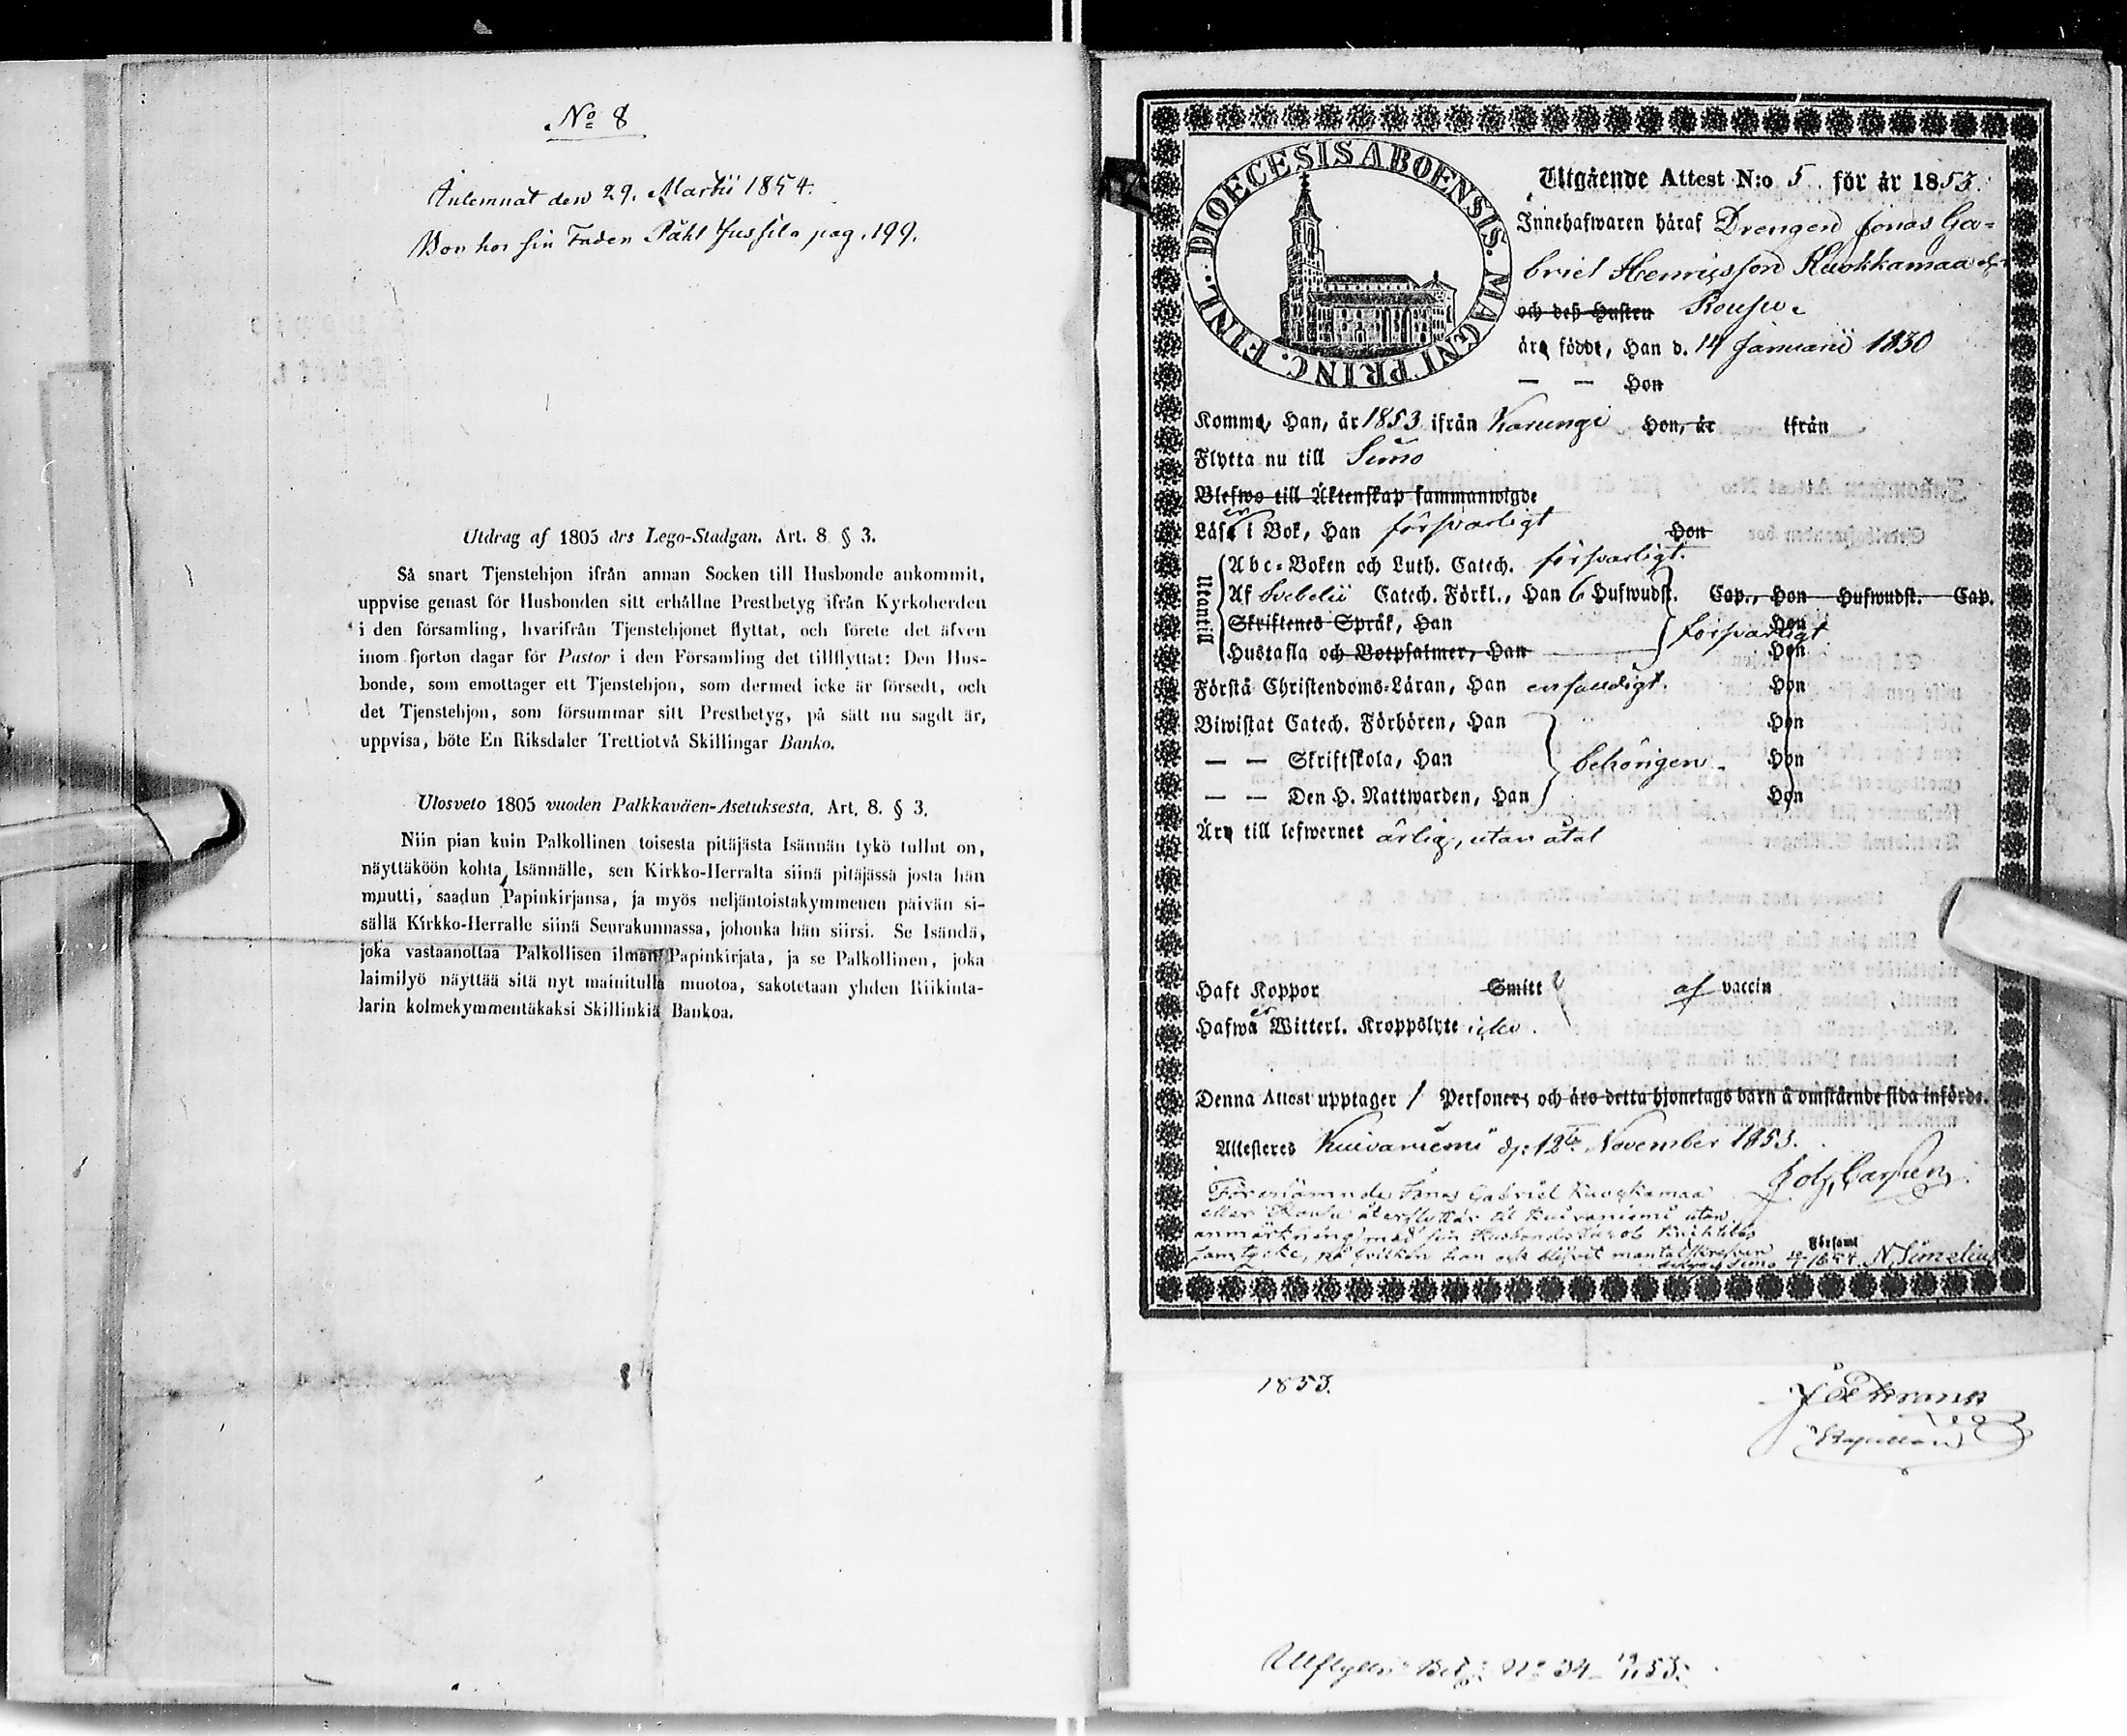 No 8
Aulemnat den 29. Martii 1854.
Bor hos sin Fader Påhl Jussila pag. 199.
Utdrag af 1805 års Lego-Stadgan. Art. 8 § 3.
Så snart Tjenstehjon ifrån annan Socken till Husbonde ankommit,
uppvise genast för Husbonden sitt erhållne Prestbetyg ifrån Kyrkoherden
i den församling, hvarifrån Tjenstehjonet flyttat, och förete det äfven
inom fjorton dagar för Pastor i den Församling det tillflyttat: Den Hus-
bonde, som emottager ett Tjenstehjon, som dermed icke är försedt, och
det Tjenstehjon, som försummar sitt Prestbetyg, på sätt nu sagdt är,
uppvisa, böte En Riksdaler Trettiotvå Skillingar Banko.
Ulosveto 1805 vuoden Palkkaväen-Asetuksesta. Art. 8. § 3.
Niin pian kuin Palkollinen toisesta pitäjästa Isännän tykö tullut on,
näyttäköön kohta Isännälle, sen Kirkko-Herralta siinä pitäjässä josta hän
muutti, saadun Papinkirjansa, ja myös neljäntoistakymmenen päivän si-
sällä Kirkko-Herralle siinä Seurakunnassa, johonka hän siirsi. Se Isändä,
joka vastaanottaa Palkollisen ilman Papinkirjata, ja se Palkollinen, joka
laimilyö näyttää sitä nyt mainitulla muotoa, sakotetaan yhden Riikinta-
larin kolmekymmentäkaksi Skillinkiä Bankoa.
DIOECESIS ABOENSIS. MAGNI PRINC. FINL.
Utgående Attest N:o 5 för år 1853.
Innehafwaren häraf Drengen Jonas Ga-
briel Henricsson Kuokkamaa
och deß Hustru Rousu
äro födde, Han d. 14 Januarii 1830
— — Hon
Komme, Han, år 1853 ifrån Karungi Hon, år ifrån
Flytta nu till Simo
Blefwo till Äktenskap sammanwigde
Läser i Bok, Han försvarligt Hon
Utantill
Abc-Boken och Luth. Catech. försvarligt.
Af Svebelii Catech. Förkl., Han 6 Hufwudst. Cap., Hon Hufwudst. Cap.
Skriftenes Språk, Han försvarligt Hon
Hustafla och Botpsalmer, Han Hon
Förstå Christendoms-Läran, Han enfaldigt. Hon
Biwistat Catech. Förhören, Han Hon
— — Skriftskola, Han behörigen Hon
— — Den H. Nattwarden, Han Hon
Äro till lefwernet ärlig, utan åtal
Haft Koppor Smitt af vaccin
Hafwa er Witterl. Kroppslyte icke.
Denna Attest upptager 1 Personer, och äro detta hjonelags barn å omstående sida införde.
Attesteres Kuivaniemi d. 12te November 1853.
Joh. Carlsen
Förenämnde Jonas Gabriel Kuokkamaa
eller Rousu återflyttar till Kuivaniemi utan
anmärkning med sin Husbondes Jacob
samtycke, på hvilken han och blifvit mantalskrefven
Församl Simo 1854 N. Simelius
1853.
Kapellan
Utflyttn Bet. No 34 19/11 53.